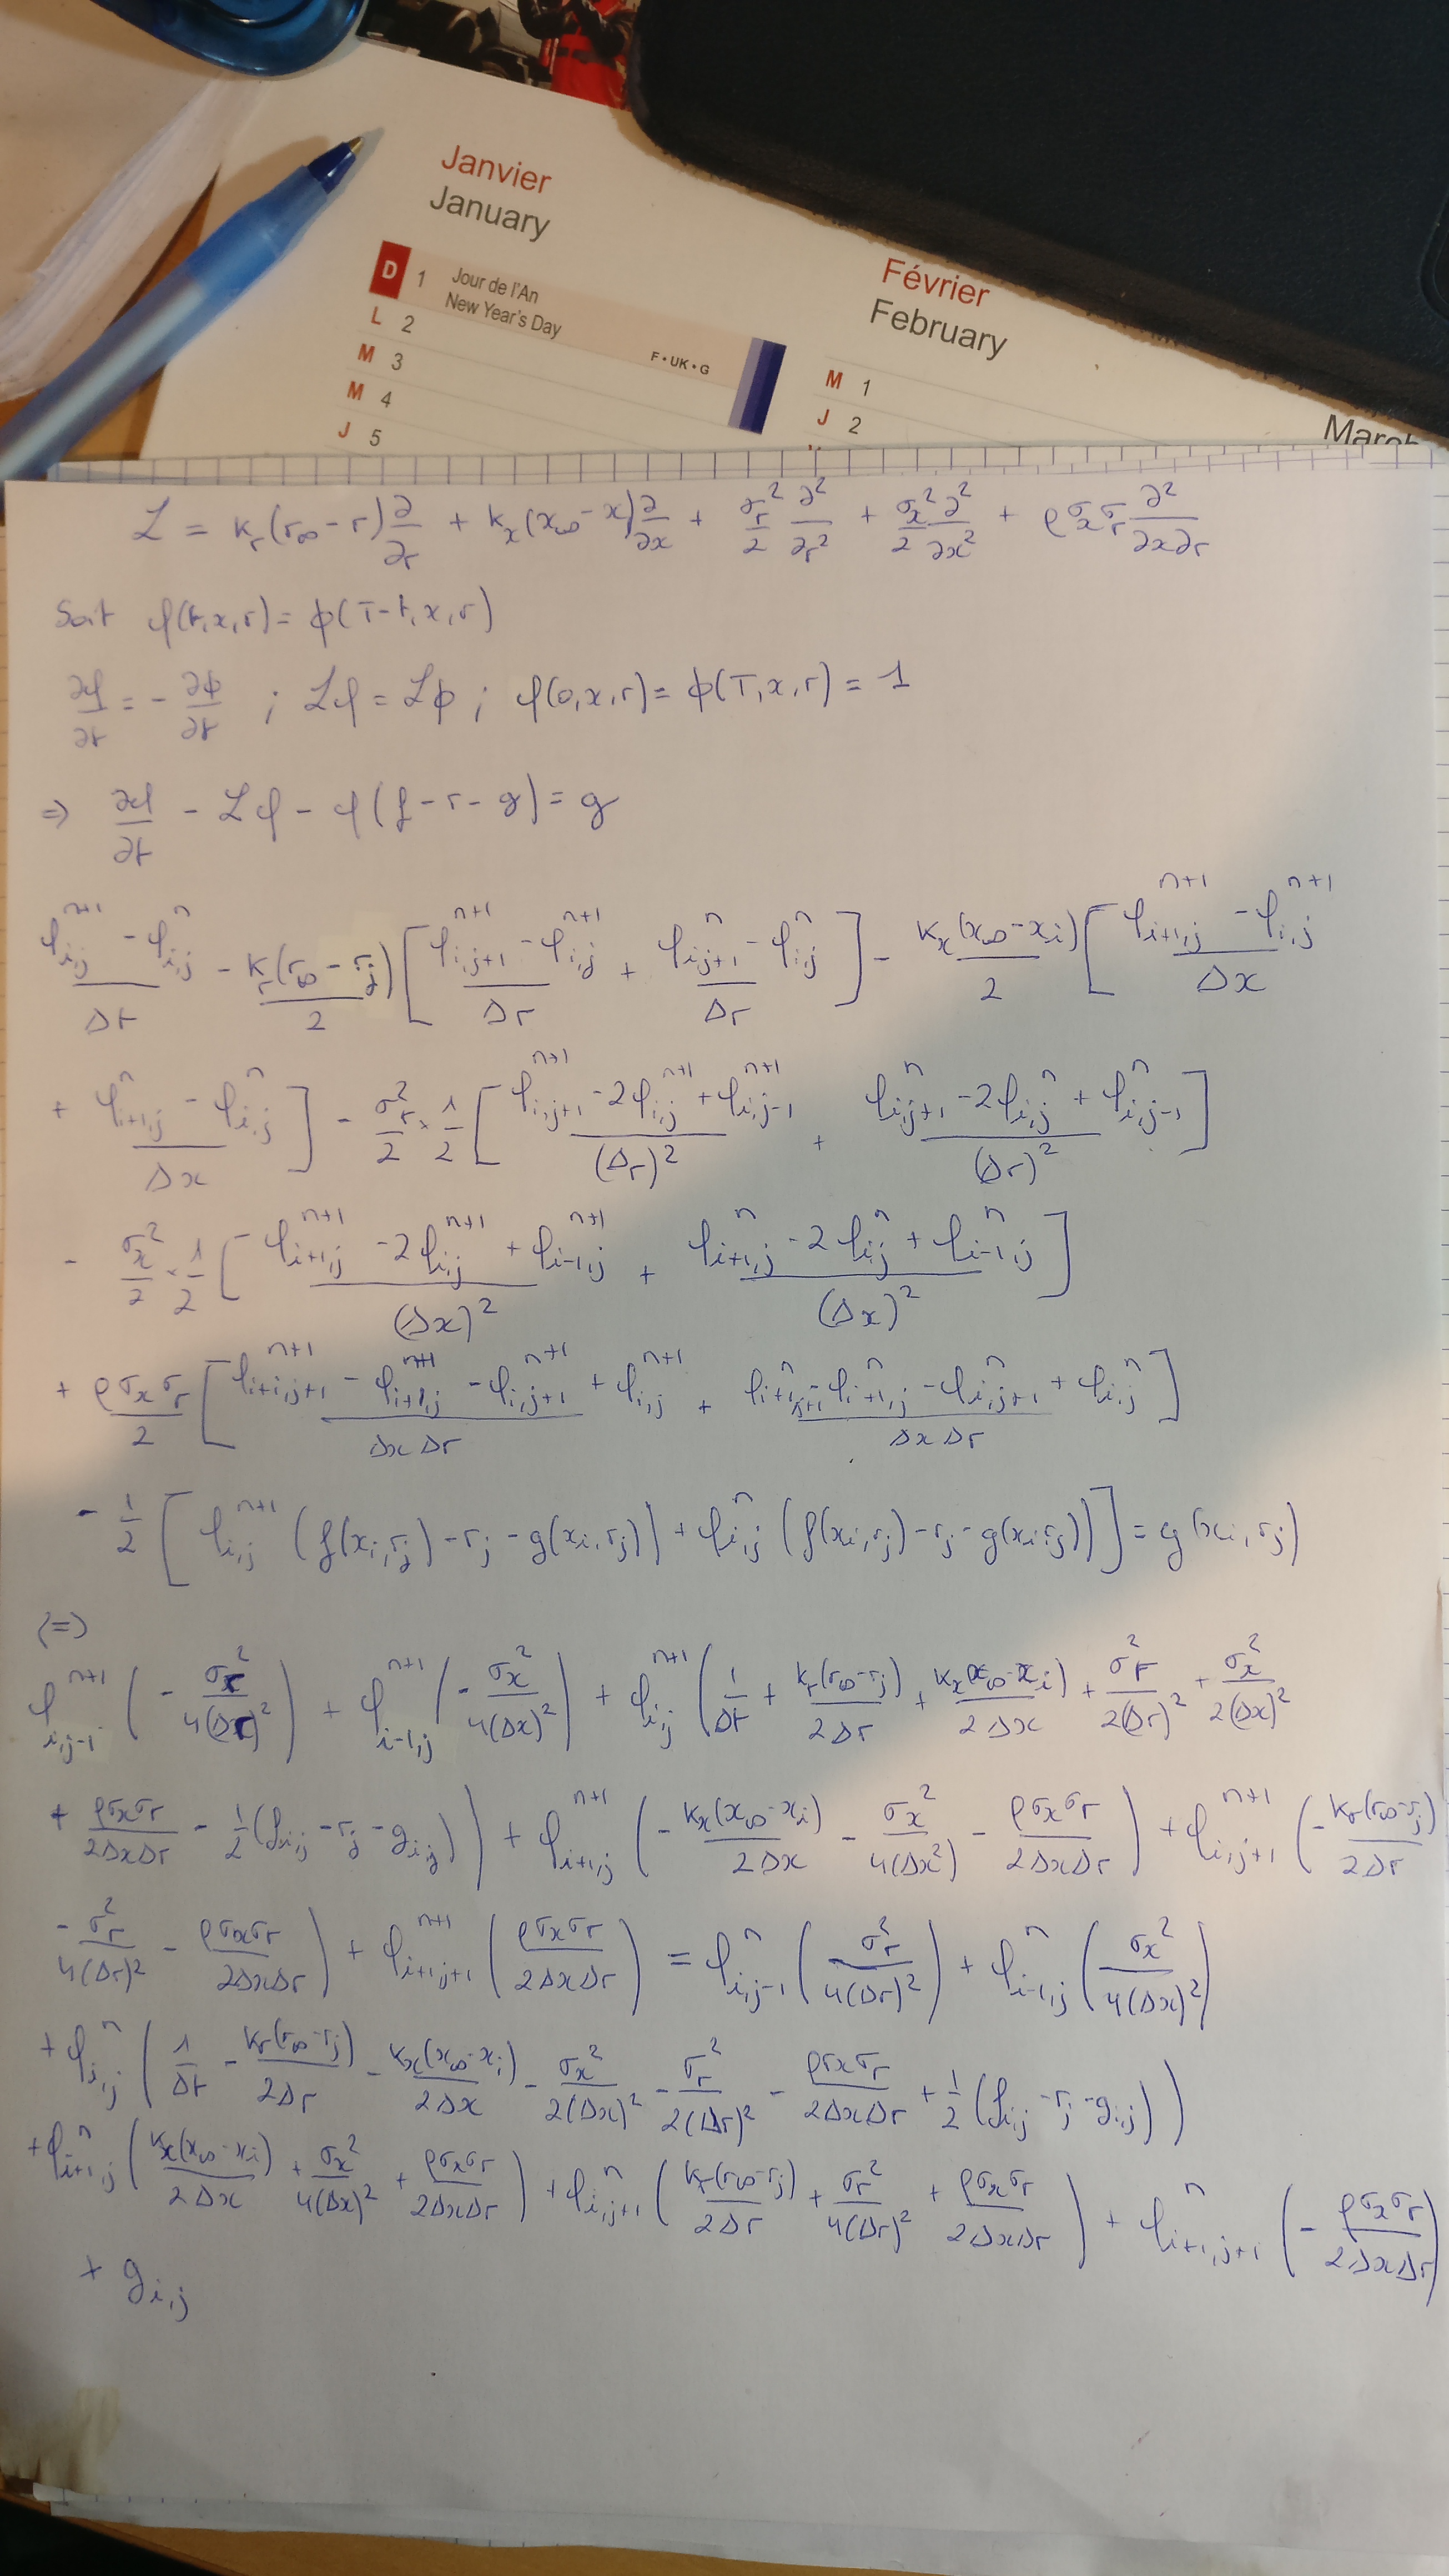 Janvier
January
D 1 Jour de l'An
New Year's Day
F • UK • G
L 2
M 3
M 4
J 5
Février
February
M 1
J 2
March
ℒ = k_r(r_∞ - r) ∂/∂r + k_x(x_∞ - x) ∂/∂x + σ_r²/2 ∂²/∂r² + σ_x²/2 ∂²/∂x² + ρσ_xσ_r ∂²/∂x∂r
Soit φ(t,x,r) = ϕ(T-t,x,r)
∂φ/∂t = - ∂ϕ/∂t ; ℒφ = ℒϕ ; φ(0,x,r) = ϕ(T,x,r) = 1
⇒ ∂φ/∂t - ℒφ - φ(f - r - g) = g
(φ_{i,j}^{n+1} - φ_{i,j}^n)/Δt - k_r(r_∞ - r_j)/2 [ (φ_{i,j+1}^{n+1} - φ_{i,j}^{n+1})/Δr + (φ_{i,j+1}^n - φ_{i,j}^n)/Δr ] - k_x(x_∞ - x_i)/2 [ (φ_{i+1,j}^{n+1} - φ_{i,j}^{n+1})/Δx
+ (φ_{i+1,j}^n - φ_{i,j}^n)/Δx ] - σ_r²/2 × 1/2 [ (φ_{i,j+1}^{n+1} - 2φ_{i,j}^{n+1} + φ_{i,j-1}^{n+1})/(Δr)² + (φ_{i,j+1}^n - 2φ_{i,j}^n + φ_{i,j-1}^n)/(Δr)² ]
- σ_x²/2 × 1/2 [ (φ_{i+1,j}^{n+1} - 2φ_{i,j}^{n+1} + φ_{i-1,j}^{n+1})/(Δx)² + (φ_{i+1,j}^n - 2φ_{i,j}^n + φ_{i-1,j}^n)/(Δx)² ]
+ ρσ_xσ_r/2 [ (φ_{i+1,j+1}^{n+1} - φ_{i+1,j}^{n+1} - φ_{i,j+1}^{n+1} + φ_{i,j}^{n+1})/ΔxΔr + (φ_{i+1,j+1}^n - φ_{i+1,j}^n - φ_{i,j+1}^n + φ_{i,j}^n)/ΔxΔr ]
- 1/2 [ φ_{i,j}^{n+1} (f(x_i,r_j) - r_j - g(x_i,r_j)) + φ_{i,j}^n (f(x_i,r_j) - r_j - g(x_i,r_j)) ] = g(x_i,r_j)
(=)
φ_{i,j-1}^{n+1} (- σ_r²/4(Δr)²) + φ_{i-1,j}^{n+1} (- σ_x²/4(Δx)²) + φ_{i,j}^{n+1} (1/Δt + k_r(r_∞ - r_j)/2Δr + k_x(x_∞ - x_i)/2Δx + σ_r²/2(Δr)² + σ_x²/2(Δx)²
+ ρσ_xσ_r/2ΔxΔr - 1/2 (f_{i,j} - r_j - g_{i,j})) + φ_{i+1,j}^{n+1} (- k_x(x_∞ - x_i)/2Δx - σ_x²/4(Δx²) - ρσ_xσ_r/2ΔxΔr) + φ_{i,j+1}^{n+1} (- k_r(r_∞ - r_j)/2Δr
- σ_r²/4(Δr)² - ρσ_xσ_r/2ΔxΔr) + φ_{i+1,j+1}^{n+1} (ρσ_xσ_r/2ΔxΔr) = φ_{i,j-1}^n (σ_r²/4(Δr)²) + φ_{i-1,j}^n (σ_x²/4(Δx)²)
+ φ_{i,j}^n (1/Δt - k_r(r_∞ - r_j)/2Δr - k_x(x_∞ - x_i)/2Δx - σ_x²/2(Δx)² - σ_r²/2(Δr)² - ρσ_xσ_r/2ΔxΔr + 1/2 (f_{i,j} - r_j - g_{i,j}))
+ φ_{i+1,j}^n (k_x(x_∞ - x_i)/2Δx + σ_x²/4(Δx)² + ρσ_xσ_r/2ΔxΔr) + φ_{i,j+1}^n (k_r(r_∞ - r_j)/2Δr + σ_r²/4(Δr)² + ρσ_xσ_r/2ΔxΔr) + φ_{i+1,j+1}^n (- ρσ_xσ_r/2ΔxΔr)
+ g_{i,j}